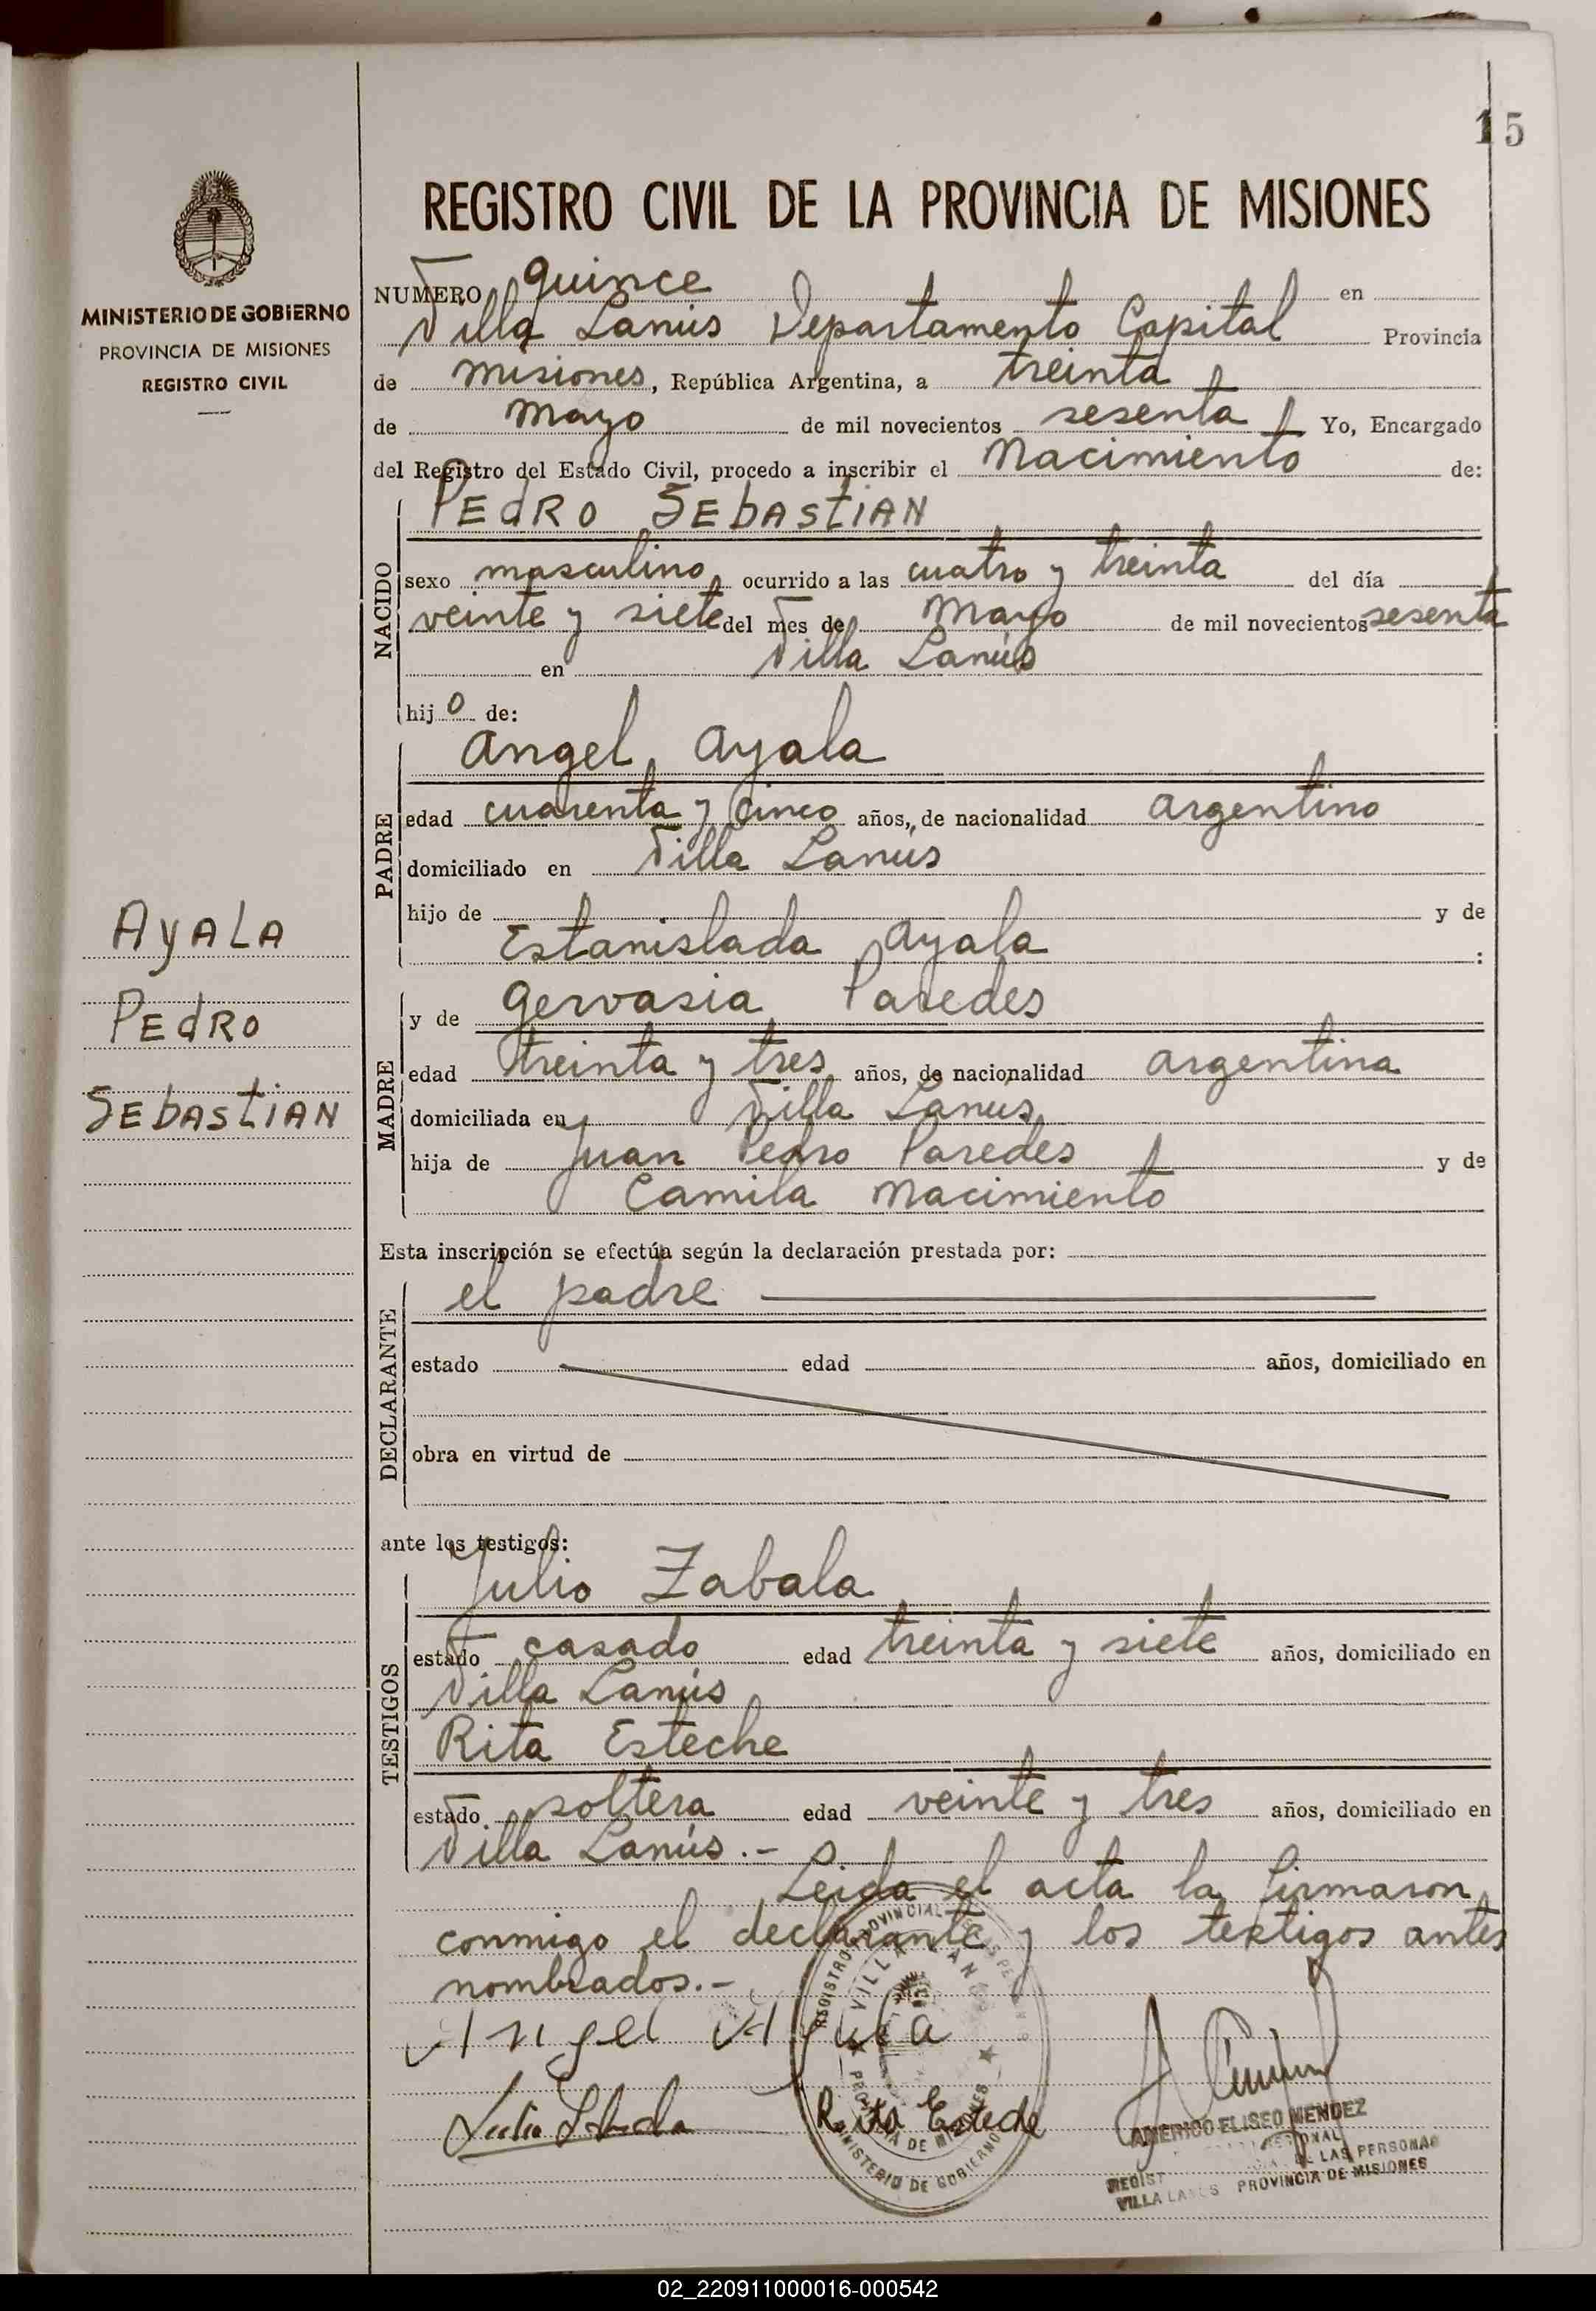 15
REGISTRO CIVIL DE LA PROVINCIA DE MISIONES
MINISTERIO DE GOBIERNO
PROVINCIA DE MISIONES
REGISTRO CIVIL
NUMERO quince en
Villa Lanús Departamento Capital Provincia
de Misiones, República Argentina, a treinta
de Mayo de mil novecientos sesenta Yo, Encargado
del Registro del Estado Civil, procedo a inscribir el Nacimiento de:
PEdRO SEbAStIAN
NACIDO
sexo masculino ocurrido a las cuatro y treinta del día
veinte y siete del mes de Mayo de mil novecientos sesenta
en Villa Lanús
hij o de:
Angel Ayala
PADRE
edad cuarenta y cinco años, de nacionalidad argentino
domiciliado en Villa Lanús
hijo de y de
Estanislada Ayala :
AyALA
PEdRO
SEbAStIAN
y de Gervasia Paredes
MADRE
edad treinta y tres años, de nacionalidad argentina
domiciliada en Villa Lanús
hija de Juan Pedro Paredes y de
Camila Nacimiento
Esta inscripción se efectúa según la declaración prestada por:
el padre
DECLARANTE
estado edad años, domiciliado en
obra en virtud de
ante los testigos:
Julio Zabala
TESTIGOS
estado casado edad treinta y siete años, domiciliado en
Villa Lanús
Rita Esteche
estado soltera edad veinte y tres años, domiciliado en
Villa Lanús.-
Leida el acta la firmaron
conmigo el declarante y los textigos antes
nombrados.-
Angel Ayala
Rita Esteche
REGISTRO PROVINCIAL
VILLA LANUS
PROVINCIA DE MISIONES
MINISTERIO DE GOBIERNO
AMERICO ELISEO MENDEZ
DE LAS PERSONAS
VILLA LANUS PROVINCIA DE MISIONES
02_220911000016-000542